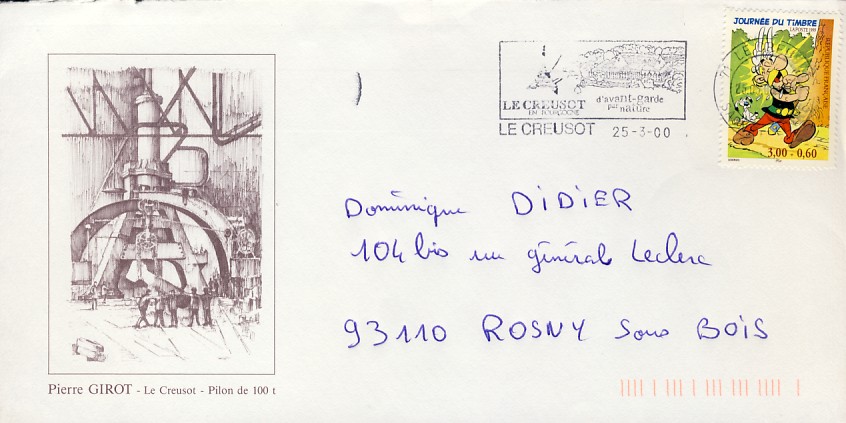 JOURNÉE DU TIMBRE
LA POSTE 1999
RÉPUBLIQUE FRANÇAISE
3,00 - 0,60
LE CREUSOT
EN BOURGOGNE
d'avant-garde
par nature
LE CREUSOT 25-3-00
Dominique DIDIER
104 bis rue général Leclerc
93110 ROSNY Sous BOIS
Pierre GIROT - Le Creusot - Pilon de 100 t